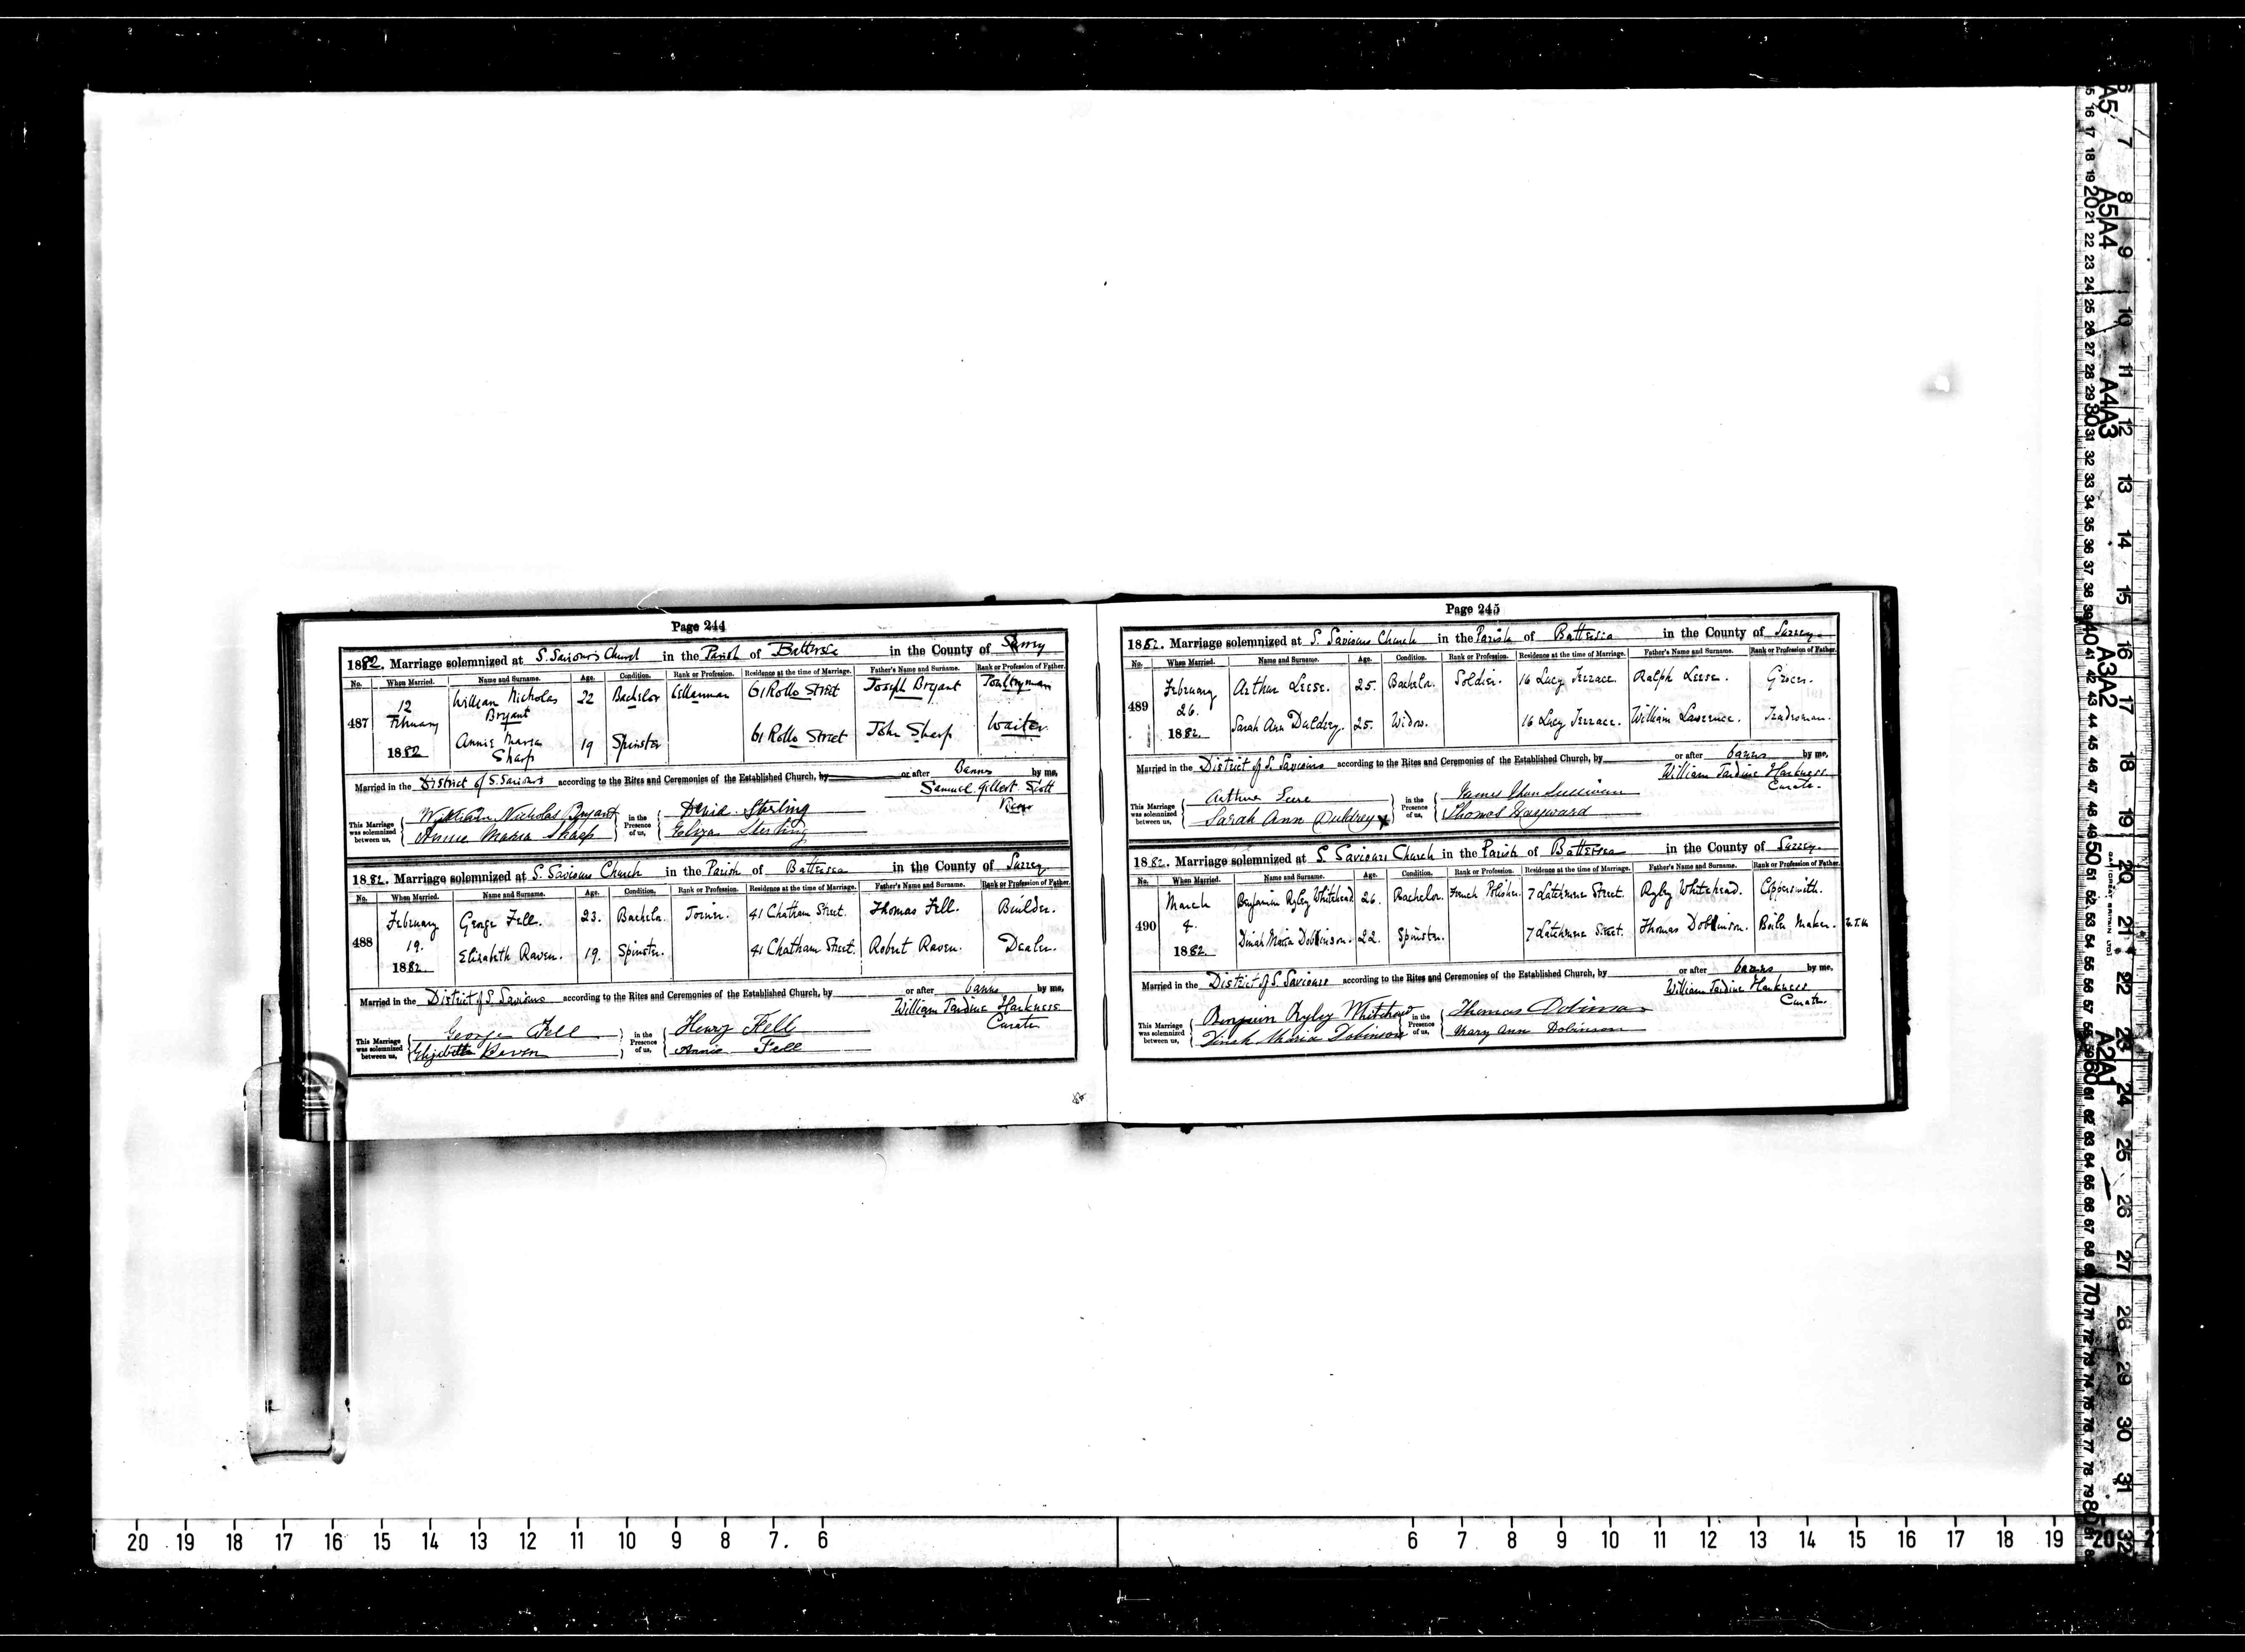 Page 244
1882. Marriage solemnized at S. Saviours Church in the Parish of Battersea in the County of Surrey
No. When Married. Name and Surname. Age. Condition. Rank or Profession. Residence at the time of Marriage. Father's Name and Surname. Rank or Profession of Father.
487 12 February 1882 William Nicholas Bryant 22 Bachelor Cellarman 61 Rollo Street Joseph Bryant Poultryman
Annie Maria Sharp 19 Spinster 61 Rollo Street John Sharp Waiter
Married in the District of S. Saviours according to the Rites and Ceremonies of the Established Church, by or after Banns by me,
Samuel Gilbert Scott
This Marriage was solemnized between us, William Nicholas Bryant in the Presence of us, David Sterling
Annie Maria Sharp Eliza Sterling
1882. Marriage solemnized at S. Saviours Church in the Parish of Battersea in the County of Surrey
No. When Married. Name and Surname. Age. Condition. Rank or Profession. Residence at the time of Marriage. Father's Name and Surname. Rank or Profession of Father.
488 February 19. 1882 George Fell. 23. Bachelor. Joiner. 41 Chatham Street. Thomas Fell. Builder.
Elizabeth Raven. 19. Spinster. 41 Chatham Street. Robert Raven. Dealer.
Married in the District of S. Saviours according to the Rites and Ceremonies of the Established Church, by or after banns by me,
William Jardine Harkness
Curate
This Marriage was solemnized between us, George Fell in the Presence of us, Henry Fell
Elizabeth Raven Annie Fell
Page 245
1882. Marriage solemnized at S. Saviours Church in the Parish of Battersea in the County of Surrey
No. When Married. Name and Surname. Age. Condition. Rank or Profession. Residence at the time of Marriage. Father's Name and Surname. Rank or Profession of Father.
489 February 26. 1882 Arthur Leese. 25. Bachelor. Soldier. 16 Lucy Terrace. Ralph Leese. Grocer.
Sarah Ann Duldrey. 25. Widow. 16 Lucy Terrace. William Lawrence. Tradesman.
Married in the District of S. Saviours according to the Rites and Ceremonies of the Established Church, by or after banns by me,
William Jardine Harkness
Curate.
This Marriage was solemnized between us, Arthur Leese in the Presence of us, James Sullivan
Sarah Ann Duldrey Thomas Hayward
1882. Marriage solemnized at S. Saviours Church in the Parish of Battersea in the County of Surrey
No. When Married. Name and Surname. Age. Condition. Rank or Profession. Residence at the time of Marriage. Father's Name and Surname. Rank or Profession of Father.
490 March 4. 1882 Benjamin Ryley Whitehead 26. Bachelor. French Polisher. 7 Latchmere Street. Ryley Whitehead. Coppersmith.
Dinah Maria Dobbinson. 22. Spinster. 7 Latchmere Street. Thomas Dobbinson. Boiler Maker.
Married in the District of S. Saviours according to the Rites and Ceremonies of the Established Church, by or after banns by me,
William Jardine Harkness
Curate.
This Marriage was solemnized between us, Benjamin Ryley Whitehead in the Presence of us, Thomas Dobinson
Dinah Maria Dobinson Mary Ann Dobinson
20 19 18 17 16 15 14 13 12 11 10 9 8 7 6 6 7 8 9 10 11 12 13 14 15 16 17 18 19 20